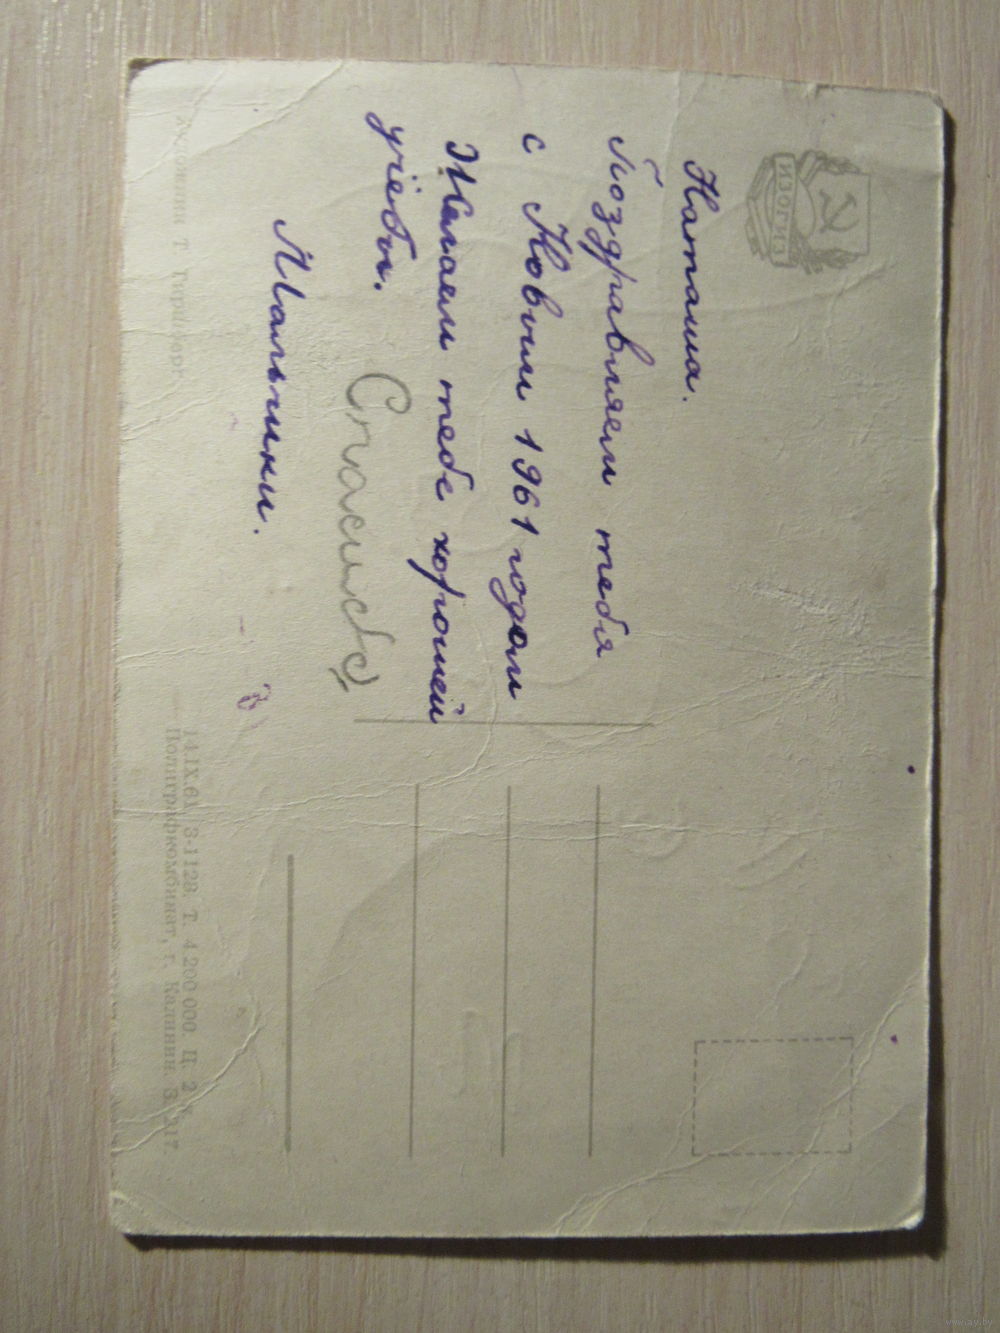 ИЗОГИЗ
Наташа.
Поздравляем тебя
с Новым 1961 годом
Желаем тебе хорошей
учёбы.
Спасибо
Мальчики.
Художник Т
14.IX.61 З-1128. Т. 4 200 000. Ц. 2
Полиграфкомбинат, г. Калинин. З.
www.ay.by